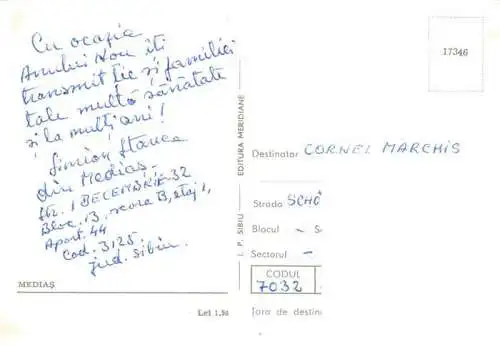 Cu ocazia
Anului Nou îți
transmit ție și familiei
tale multă sănătate
și la mulți ani!
Simion Stanca
din Mediaș.
Str. 1 DECEMBRIE 32
Bloc. 13, scara B, etaj 1,
Apart. 44
Cod. 3125
jud. Sibiu.
MEDIAȘ
Lei 1,50
I. P. SIBIU — EDITURA MERIDIANE
17346
Destinatar CORNEL MARCHIS
Strada SCHO
Blocul ~ S
Sectorul -
CODUL
7032
Țara de destina